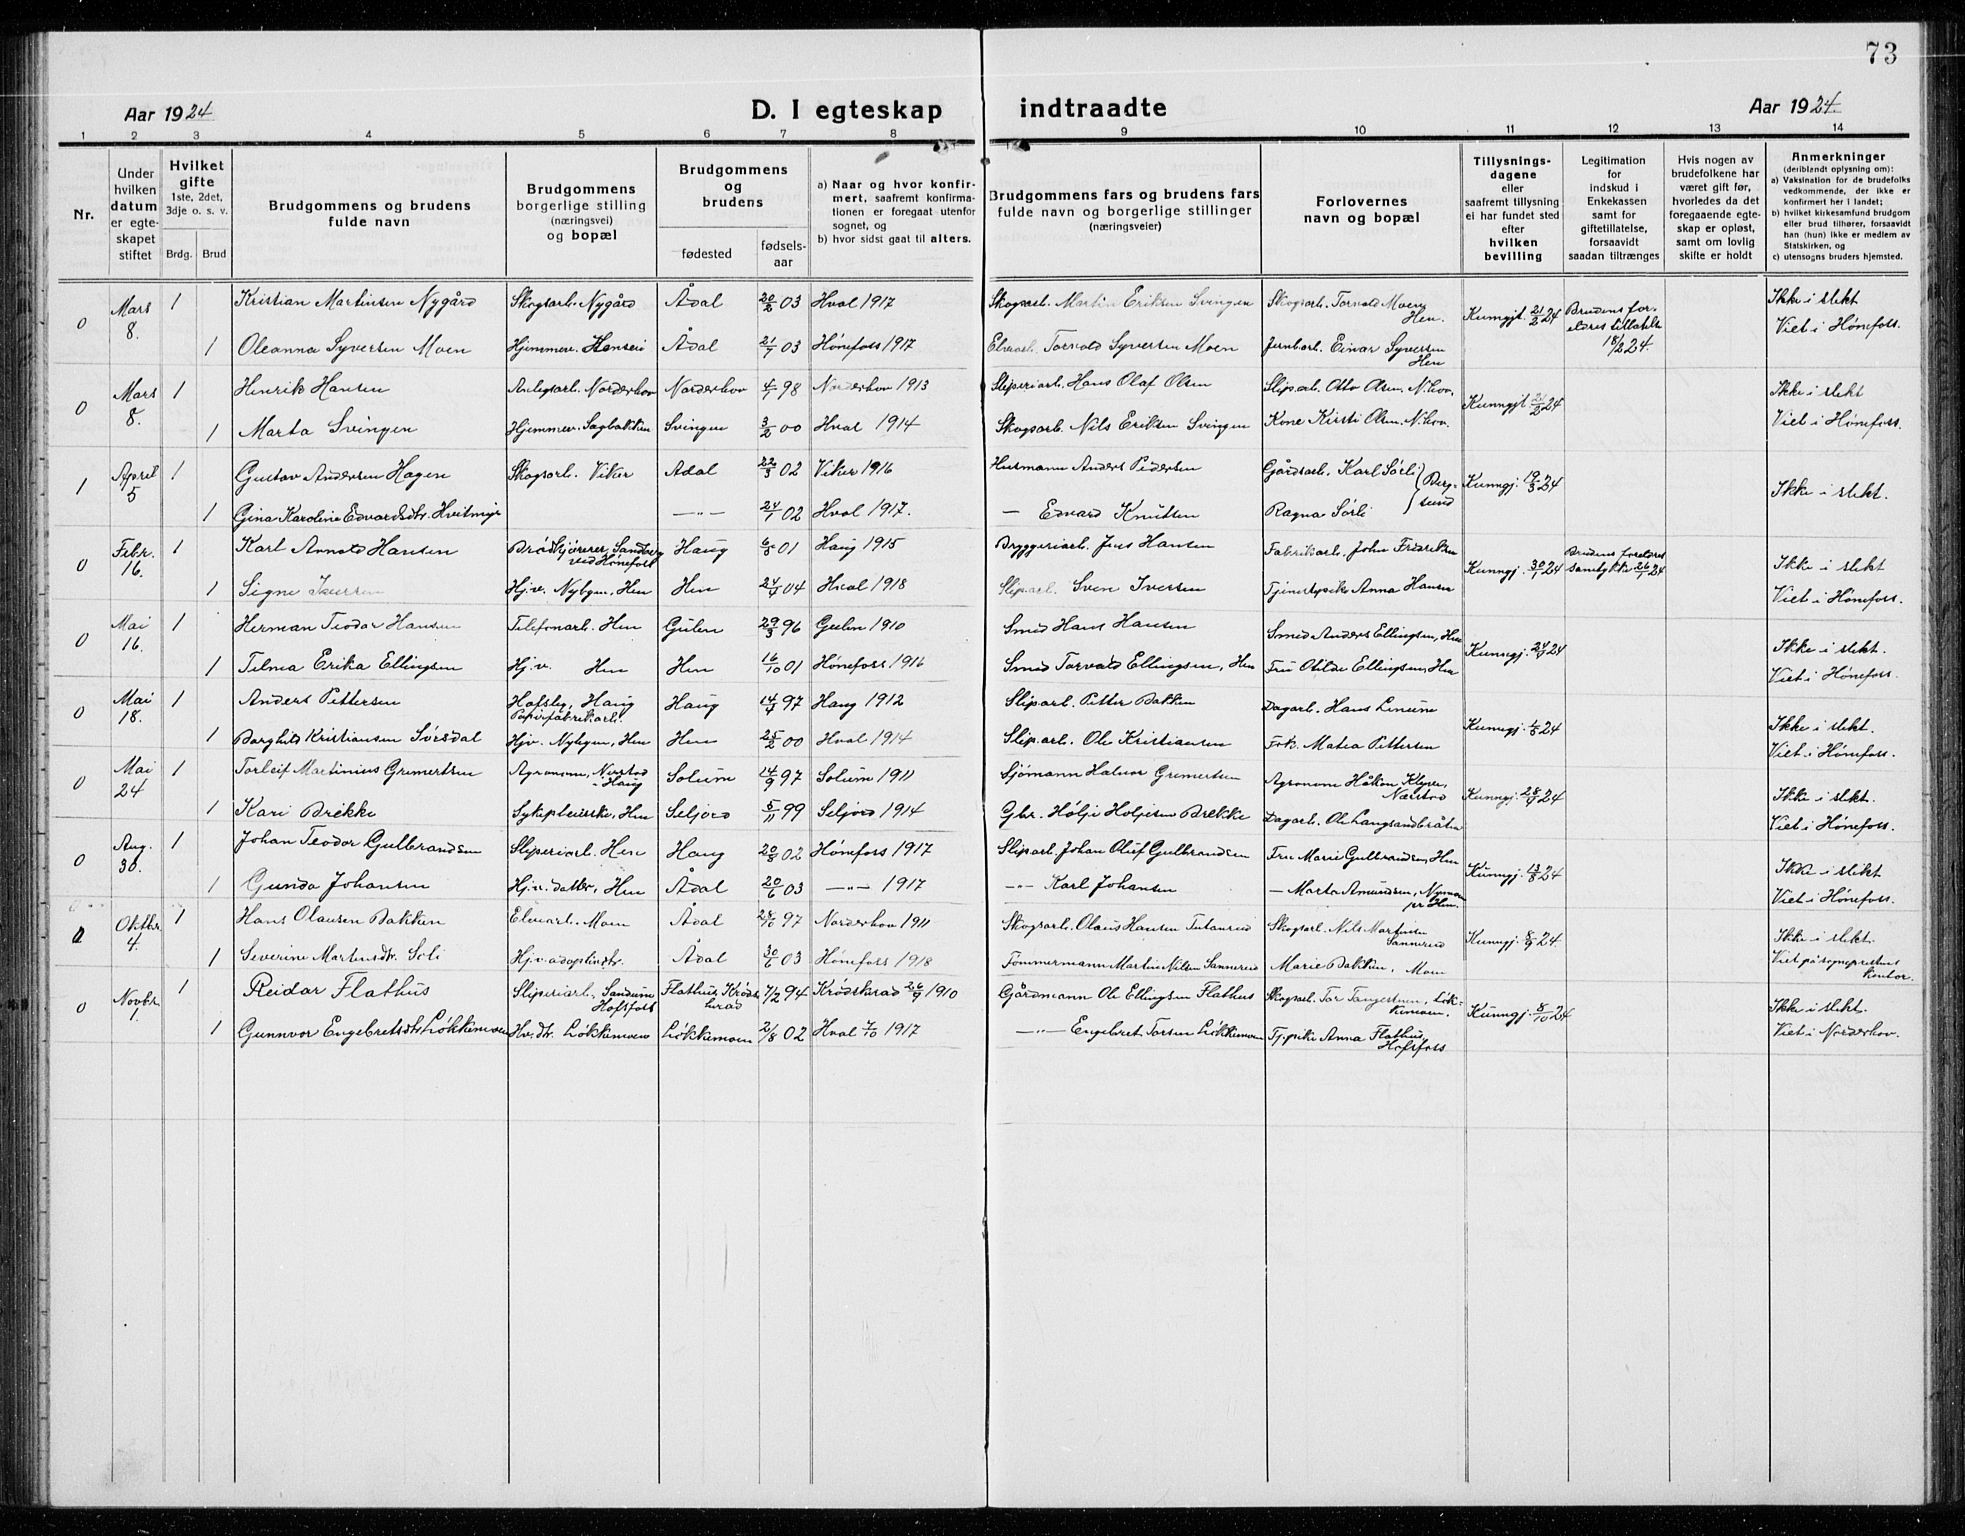 73
Aar 1924
D. I egteskap indtraadte
Aar 1924.
1 2 3 4 5 6 7 8 9 10 11 12 13 14
Nr.
Under hvilken datum er egte-skapet stiftet
Hvilket gifte 1ste, 2det, 3dje o. s. v.
Brdg. Brud
Brudgommens og brudens fulde navn
Brudgommens borgerlige stilling (næringsvei) og bopæl
Brudgommens og brudens
fødested
fødsels-aar
a) Naar og hvor konfir-mert, saafremt konfirma-tionen er foregaat utenfor sognet, og
b) hvor sidst gaat til alters.
Brudgommens fars og brudens fars fulde navn og borgerlige stillinger (næringsveier)
Forlovernes navn og bopæl
Tillysnings-dagene eller saafremt tillysning ei har fundet sted efter hvilken bevilling
Legitimation for indskud i Enkekassen samt for giftetillatelse, forsaavidt saadan tiltrænges
Hvis nogen av brudefolkene har været gift før, hvorledes da det foregaaende egte-skap er opløst, samt om lovlig skifte er holdt
Anmerkninger (deriblandt oplysning om):
a) Vaksination for de brudefolks vedkommende, der ikke er konfirmert her i landet;
b) hvilket kirkesamfund brudgom eller brud tilhører, forsaavidt han (hun) ikke er medlem av Statskirken, og
c) utensogns bruders hjemsted.
0 Mars 8. 1 Kristian Martinsen Nygård Skogsarb. Nygård Ådal 20/2 03 Hval 1917 Skogsarb. Martin Eriksen Svingen Skogsarb. Torvald Moen, Hen. Kunngj. 21/2 24 Brudens for-eldres tillatelse 18/2 24. Ikke i slekt
1 Oleanna Syversen Moen Hjemmev. Hensei Ådal 21/7 03 Hønefoss 1917 Elvearb. Torvald Syversen Moen Jernbarb. Einar Syversen Hen Viet i Hønefoss.
0 Mars 8. 1 Henrik Hansen Anlegsarb. Norderhov Norderhov 4/7 98 Norderhov 1913 Sliperiarb. Hans Olaf Olsen Sliparb. Otto Olsen, N.hov. Kunngjt 21/2 24 Ikke i slekt
1 Marta Svingen Hjemmev. Sagbakken Svingen 3/2 00 Hval 1914 Skogsarb. Nils Eriksen Svingen Kone Kirsti Olsen N.hov. Viet i Hønefoss.
1 April 5 1 Gustav Andersen Hagen Skogsarb. Viker Adal 22/3 02 Viker 1916 Husmann Anders Pedersen Gårdsarb. Karl Sørli Berg-sund Kunngj. 19/3 24 Ikke i slekt.
1 Gina Karoline Edvardsdtr. Hveitmyr —"— 24/1 02 Hval 1917. — Edvard Knutsen Ragna Sørli
0 Febr. 16. 1 Karl Arnold Hansen Brødkjører, Sandberg ved Hønefoss Haug 6/5 01 Haug 1915 Bryggeriarb. Jens Hansen Fabrikarb. John Fredriksen Kunngj. 30/1 24 Brudens foreldres samtykke 26/1 24 Ikke i slekt
1 Signe Iversen Hj.v. Nybyen, Hen Hen 24/4 04 Hval 1918 Sliparb. Sven Iversen Tjenestepike Anna Hansen Viet i Hønefoss.
0 Mai 16. 1 Herman Teodor Hansen Telefonarb. Hen Gulen 29/3 96 Gulen 1910 Smed Hans Hansen Smed Anders Ellingsen, Hen Kunngj. 24/4 24 Ikke i slekt.
1 Telma Erika Ellingsen Hj.v. Hen Hen 16/10 01 Hønefoss 1916 Smed Torvald Ellingsen, Hen Fru Otilde Ellingsen, Hen Viet i Hønefoss.
0 Mai 18. 1 Anders Pettersen Hofsby, Haug Papirfabrikarb. Haug 14/4 97 Haug 1912 Sliparb. Petter Bakken Dagarb. Hans Kunngj. 1/5 24 Ikke i slekt.
1 Borghild Kristiansen Sørsdal Hjv. Nybyen, Hen Hen 25/2 00 Hval 1914 Sliparb. Ole Kristiansen Frk. Matea Pettersen Viet i Hønefoss.
0 Mai 24 1 Torleif Martinius Gremertsen Agronom, Nerstad i Haug Solum 14/9 97 Solum 1911 Sjømann Halvor Gremertsen Agronom Håkon Kleven, Nerstad Kunngj. 28/4 24 Ikke i slekt.
1 Kari Brekke Sykepleierske, Hen Seljord 5/11 99 Seljord 1914 Gbr. Holje Holjesen Brekke Dagarb. Ole Langsandbråten Viet i Hønefoss.
0 Aug. 30. 1 Johan Teodor Gulbrandsen Sliperiarb. Hen Haug 20/8 02 Hønefoss 1917 Sliparb. Johan Oluf Gulbrandsen Fru Marie Gulbrandsen, Hen Kunngj. 13/8 24 Ikke i slekt
1 Gunda Johansen Hj.v. datter, Hen Ådal 20/6 03 —"— 1917 —"— Karl Johansen — Marta Amundsen, Nymoen pr Hen. Viet i Hønefoss.
1 Oktbr. 4. 1 Hans Olausen Bakken Elvearb. Moen Ådal 97 Norderhov 1911 Skogsarb. Olaus Hansen Tutanrud Skogsarb. Nils Martinsen Sannerud Kunngj. 8/9 24 Ikke i slekt.
1 Severine Martinsdtr. Soli Hj.v. adoptivdtr. Ådal 30/6 03 Hønefoss 1918 Tømmermann Martin Nilsen Sannerud Marie Bakken, Moen Viet på sogneprestens kontor.
0 Novbr. 1. 1 Reidar Flathus Sliperiarb. Sandum Hofsfoss Flathus, Krøds-herad 7/2 94 Krødsherad 26/9 1910 Gårdmann Ole Ellingsen Flathus Skogsarb. Tor Tangestuen, Løk-kemoen. Kunngj. 8/10 24 Ikke i slekt.
1 Gunnvor Engebretsdtr. Løkkemoen Hv. dtr. Løkkemoen Løkkemoen 2/8 02 Hval 7/10 1917 —"— Engebret Torsen Løkkemoen Tj.pike Anna Flathus, Hofsfoss Viet i Norderhov.